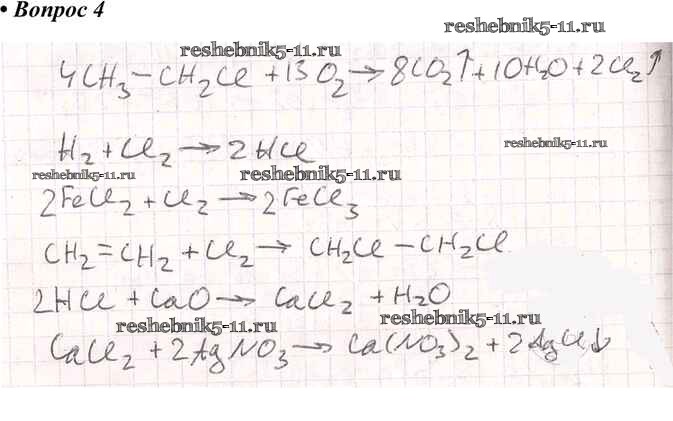 • Вопрос 4
reshebnik5-11.ru
reshebnik5-11.ru
4CH₃–CH₂Cl + 13O₂ → 8CO₂↑ + 10H₂O + 2Cl₂↑
reshebnik5-11.ru
H₂ + Cl₂ → 2HCl
reshebnik5-11.ru
reshebnik5-11.ru
2FeCl₂ + Cl₂ → 2FeCl₃
CH₂=CH₂ + Cl₂ → CH₂Cl–CH₂Cl
2HCl + CaO → CaCl₂ + H₂O
reshebnik5-11.ru
reshebnik5-11.ru
CaCl₂ + 2AgNO₃ → Ca(NO₃)₂ + 2AgCl↓